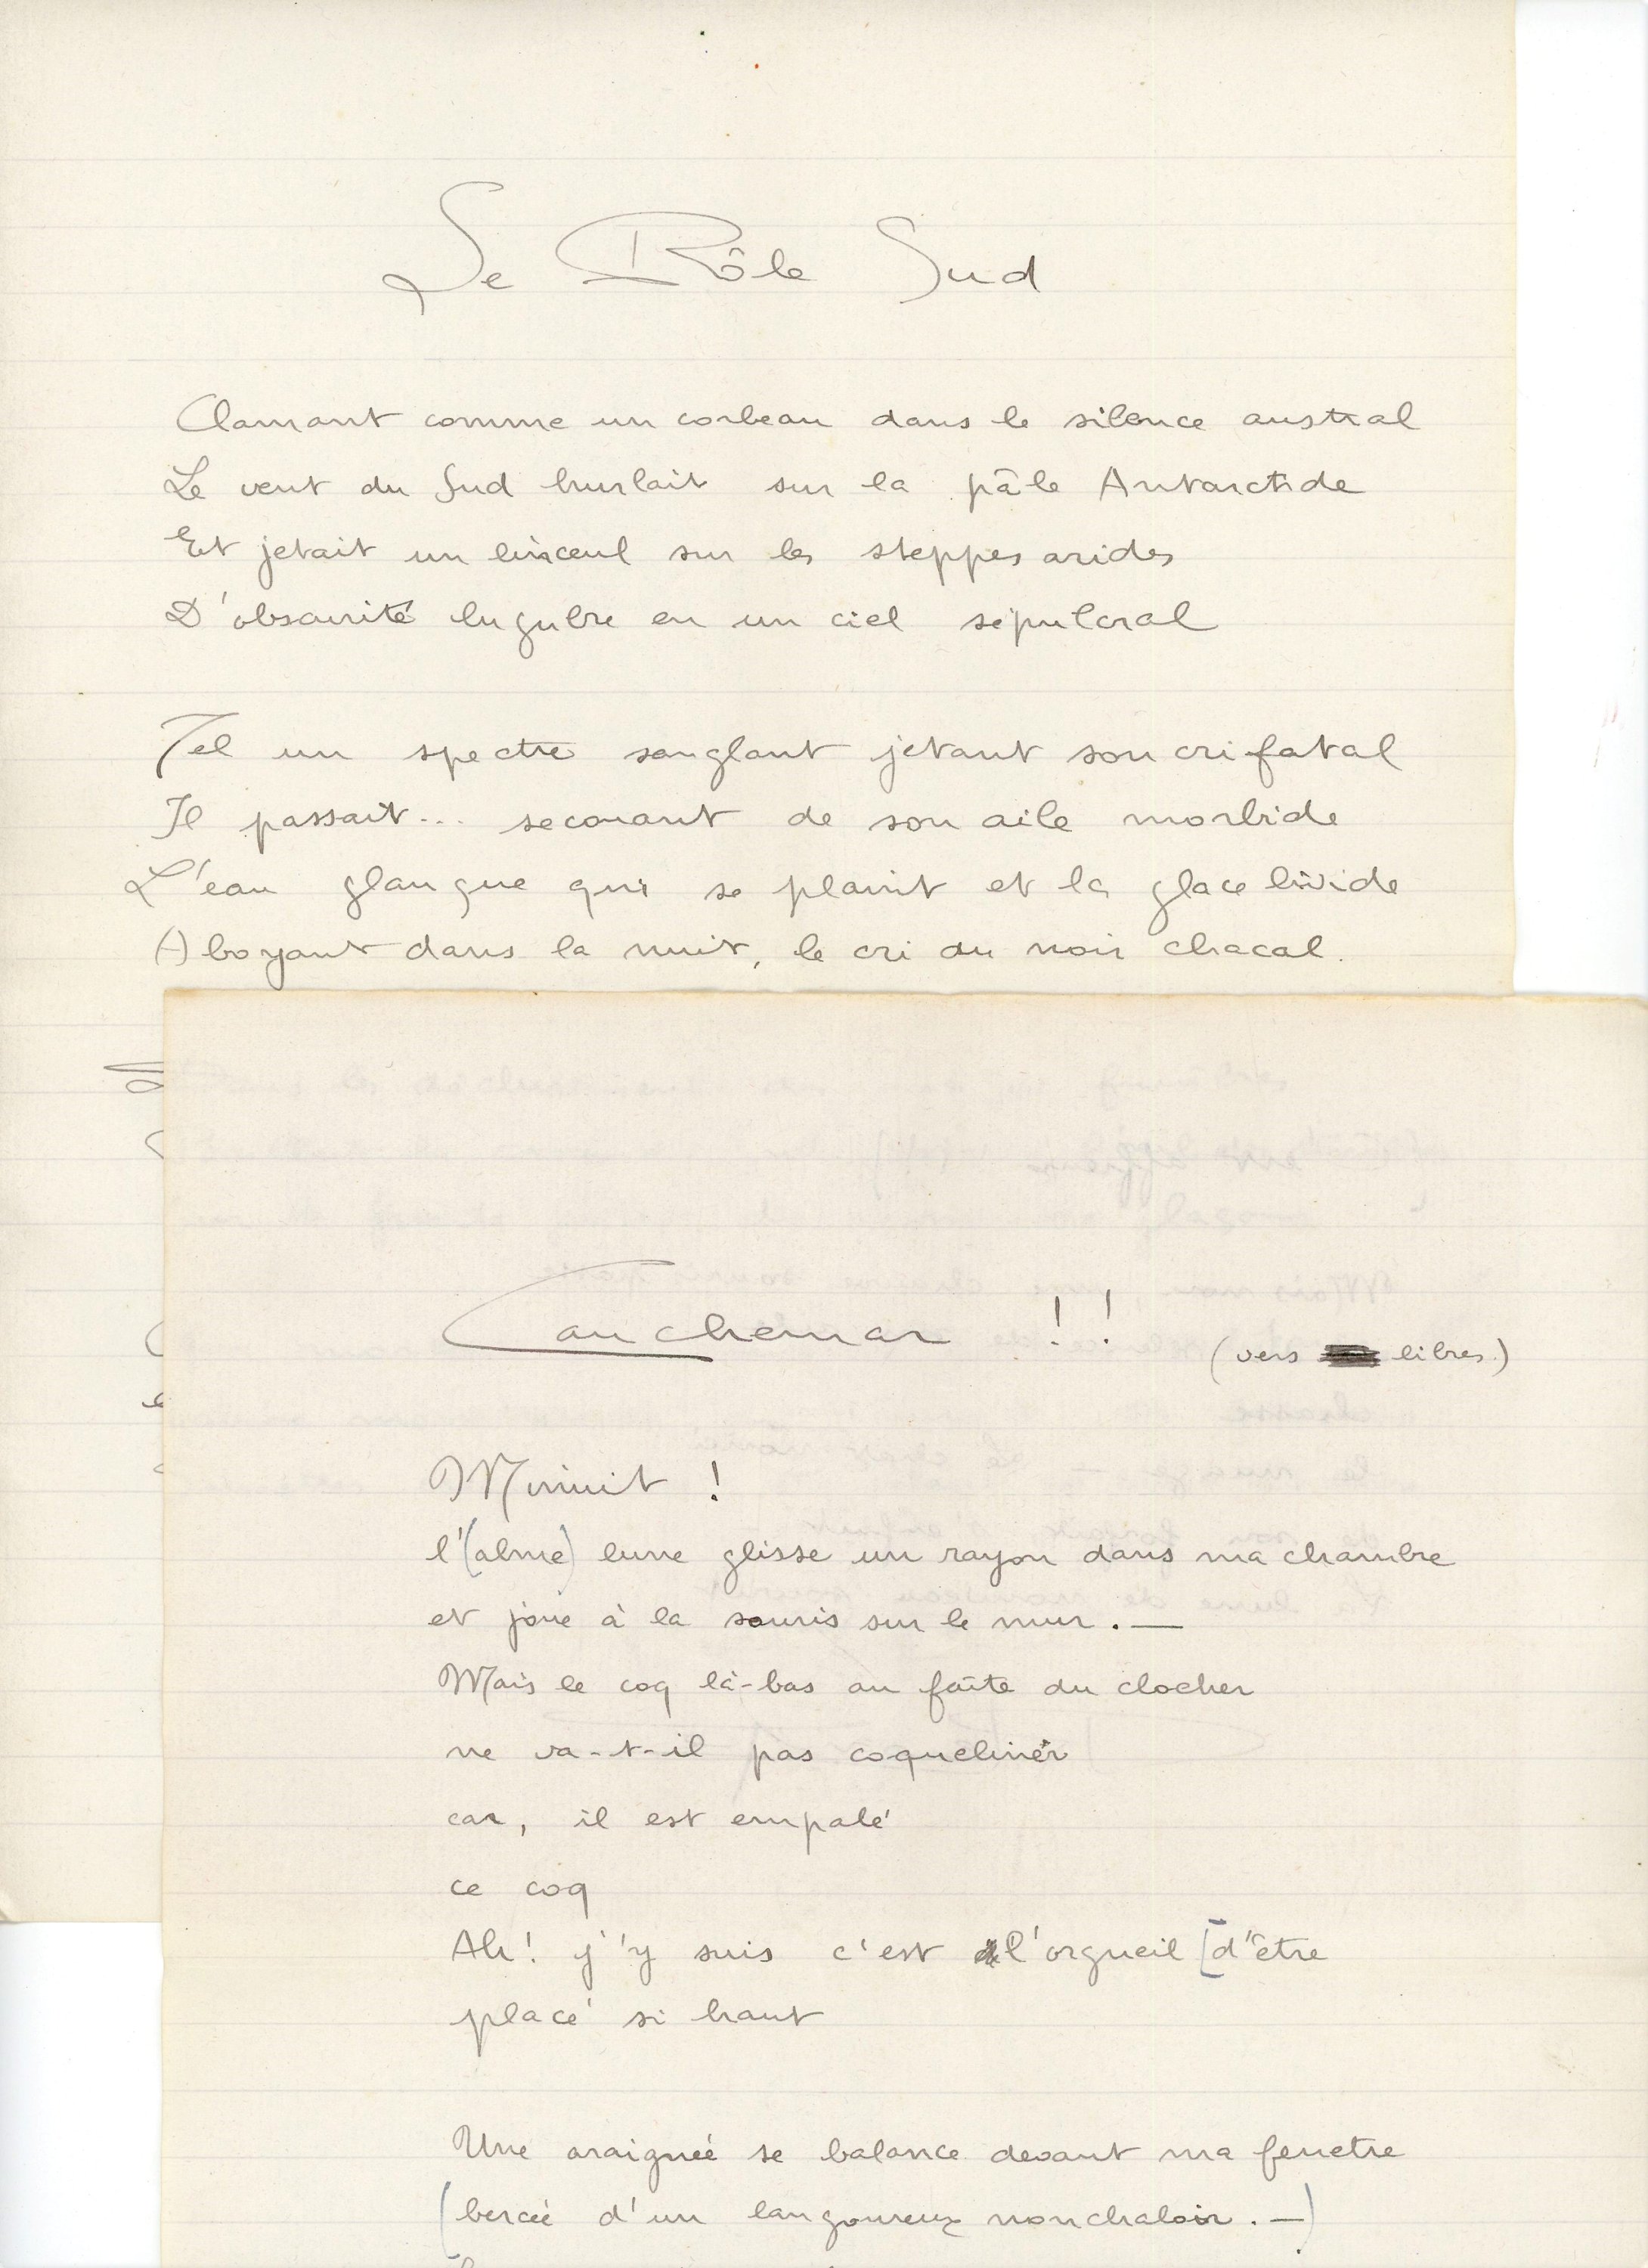 Le Pôle Sud
Clamant comme un corbeau dans le silence austral
Le vent du Sud hurlait sur la pâle Antarctide
Et jetait un linceul sur les steppes arides
D'obscurité lugubre en un ciel sépulcral
Tel un spectre sanglant jetant son cri fatal
Il passait... secouant de son aile morbide
L'eau glauque qui se plaint et la glace livide
Aboyant dans la nuit, le cri du noir chacal.
Cauchemar !!
(vers libres.)
Minuit !
l'(alme) lune glisse un rayon dans ma chambre
et joue à la souris sur le mur. —
Mais le coq là-bas au faîte du clocher
ne va-t-il pas coqueliner
car, il est empalé
ce coq
Ah! j'y suis c'est l'orgueil [d'être
placé si haut
Une araignée se balance devant ma fenetre
(bercée d'un langoureux nonchaloir. —)